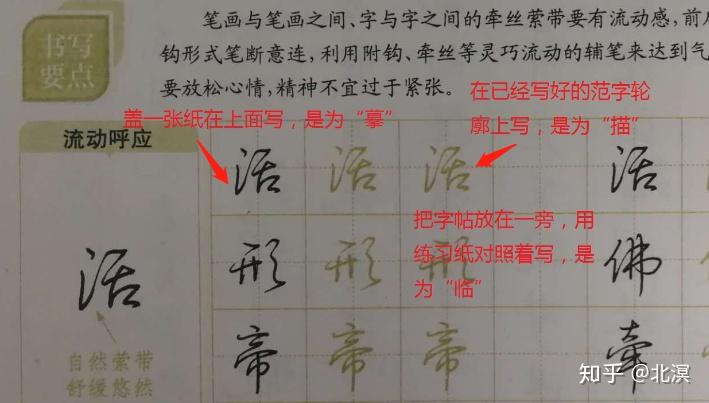 书写
要点
笔画与笔画之间、字与字之间的牵丝萦带要有流动感,前后
钩形式笔断意连,利用附钩、牵丝等灵巧流动的辅笔来达到气
要放松心情,精神不宜过于紧张。
在已经写好的范字轮
廓上写,是为“描”
盖一张纸在上面写,是为“摹”
流动呼应
活 活 活 活
把字帖放在一旁,用
练习纸对照着写,是
为“临”
活
形 形 形 佛
帝 帝 帝 牵
自然萦带
舒缓悠然
知乎 @北溟